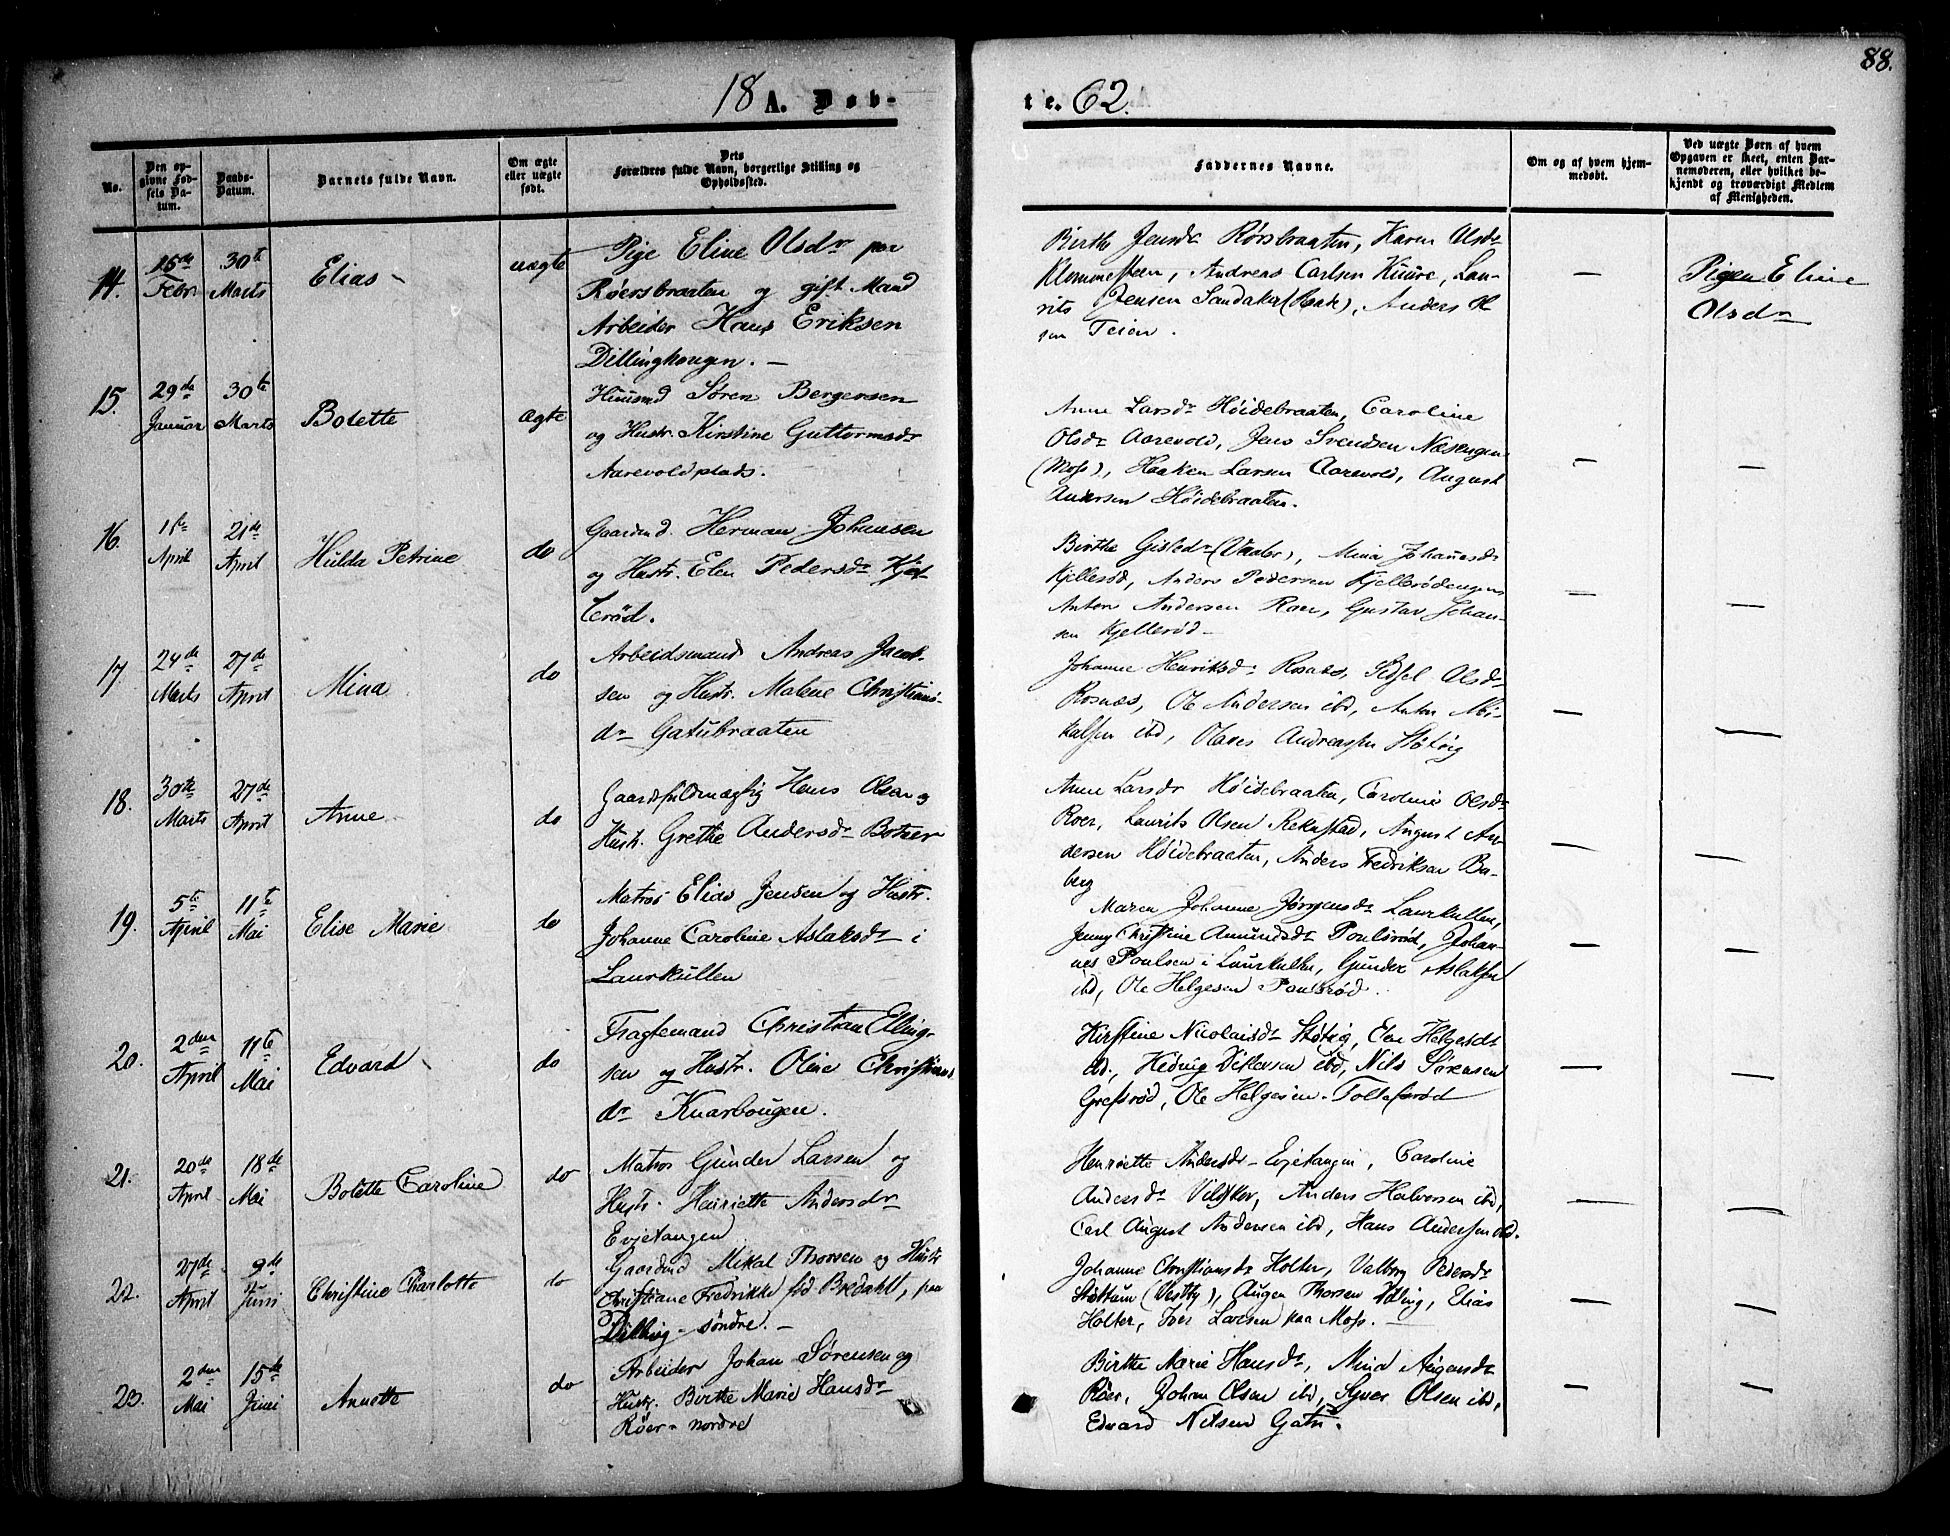 88.
18 A. Døb-
te. 62.
No.
Den op-
givne Fød-
sels Da-
tum.
Daabs-
Datum.
Barnets fulde Navn.
Om ægte
eller uægte
født.
Dets
Forældres fulde Navn, borgerlige Stilling og
Opholdssted.
Faddernes Navne.
Om og af hvem hjem-
medøbt.
Ved uægte Børn af hvem
Opgaven er skeet, enten Bar-
nemoderen, eller hvilket be-
kjendt og troværdigt Medlem
af Menigheden.
14.
15de
Febr
30te
Marts
Elias
uægte
Pige Eline Olsdr paa
Røersbraaten og gift Mand
Arbeider Hans Eriksen
Dillinghougen. —
Birthe Jensdr Rørsbraaten, Karen Olsdr
Klommesteen, Andreas Carlsen Kuure, Lau-
rits Jensen Sandaker, Anders Ol
sen Teien.
—
Pigen Eline
Olsdr
15.
29de
Januar
30te
Marts
Bolette
ægte
Huusmd Søren Bergersen
og Hustr. Kirstine Guttormsdr
Aarevoldplads.
Anne Larsdr Høidebraaten, Caroline
Olsdr Aarevold, Jens Svendsen Næsengen
(Moss), Haaken Larsen Aarevold, August
Andersen Høidebraaten.
—
—
16.
1ste
April
21de
April
Hulda Petrine
do
Gaardmd. Herman Johansen
og Hustr. Elen Pedersdr Kjel-
lerød.
Birthe (Vaaler), Mina Johannesdr
Kjellerød, Anders Pedersen Kjellerødengen
Anton Andersen Roer, Gustav Johan-
sen Kjellerød —
—
—
17
24de
Marts
27de
April
Mina
do
Arbeidsmand Andreas Jacob-
sen og Hustr. Malene Christians-
dr Gatubraaten
Johanne Henriksdr Rosnæs, Sidsel Olsdr
Rosnæs, Ole Andersen ibd, Anton Mi-
kalsen ibd, Olaves Andreassen Støtvig
—
—
18.
30te
Marts
27de
April
Anne
do
Gaardsfuldmægtig Hans Olsen og
Hustr. Grethe Andersdr Botner
Anne Larsdr Høidebraaten, Caroline Olsdr
Roer, Laurits Olsen Rekustad, August An-
dersen Høidebraaten, Anders Fredriksen Ba-
berg
—
—
19.
5te
April
11te
Mai
Elise Marie
do
Matros Elias Jensen og Hustr.
Johanne Caroline Aslaksdr i
Laurkullen
Maren Johanne Jørgensdr Laurkullen,
Jenny Christine Amundsdr Poulsrød, Johan-
nes Poulsen i Laurkullen, Gunder Aslaksen
ibd, Ole Helgesen Poulsrød.
—
—
20.
2den
April
11te
Mai
Edvard
do
Fragtemand Christian Elling-
sen og Hustr. Oline Christians
dr Knarbougen.
Kirstine Nicolaisdr Støtvig, Elen Helgesdr
ibd., Hedvig ibd, Nils Sørensen
Grefsrød, Ole Helgesen Tollefsrød
—
—
21.
20de
April
18de
Mai
Bolette Caroline
do
Matros Gunder Larsen og
Hustr. Henriette Andersdr
Evjetangen
Henriette Andersdr Evjetangen, Caroline
Andersdr, Anders Halvorsen ibd,
Carl August Andersen ibd, Hans Andersen ibd.
—
—
22.
27de
April
9de
Juni
Christine Charlotte
do
Gaardmd Mikal Thorsen og Hustr
Christiane Fredrikke fød Bredahl, paa
Dilling søndre. —
Johanne Christiansdr Holter, Valborg Pedersdr
Støttum (Vestby), Augen Thorsen Dilling, Elias
Holter, Iver Larsen paa Moss. —
—
—
23.
2den
Mai
15de
Juni
Annette
do
Arbeider Johan Sørensen og
Hustr. Birthe Marie Hansdr
Røer nordre
Birthe Marie Hansdr, Mina Augensdr
Røer, Johan Olsen ibd, Syver Olsen ibd,
Edvard Nilsen Gatu.
—
—